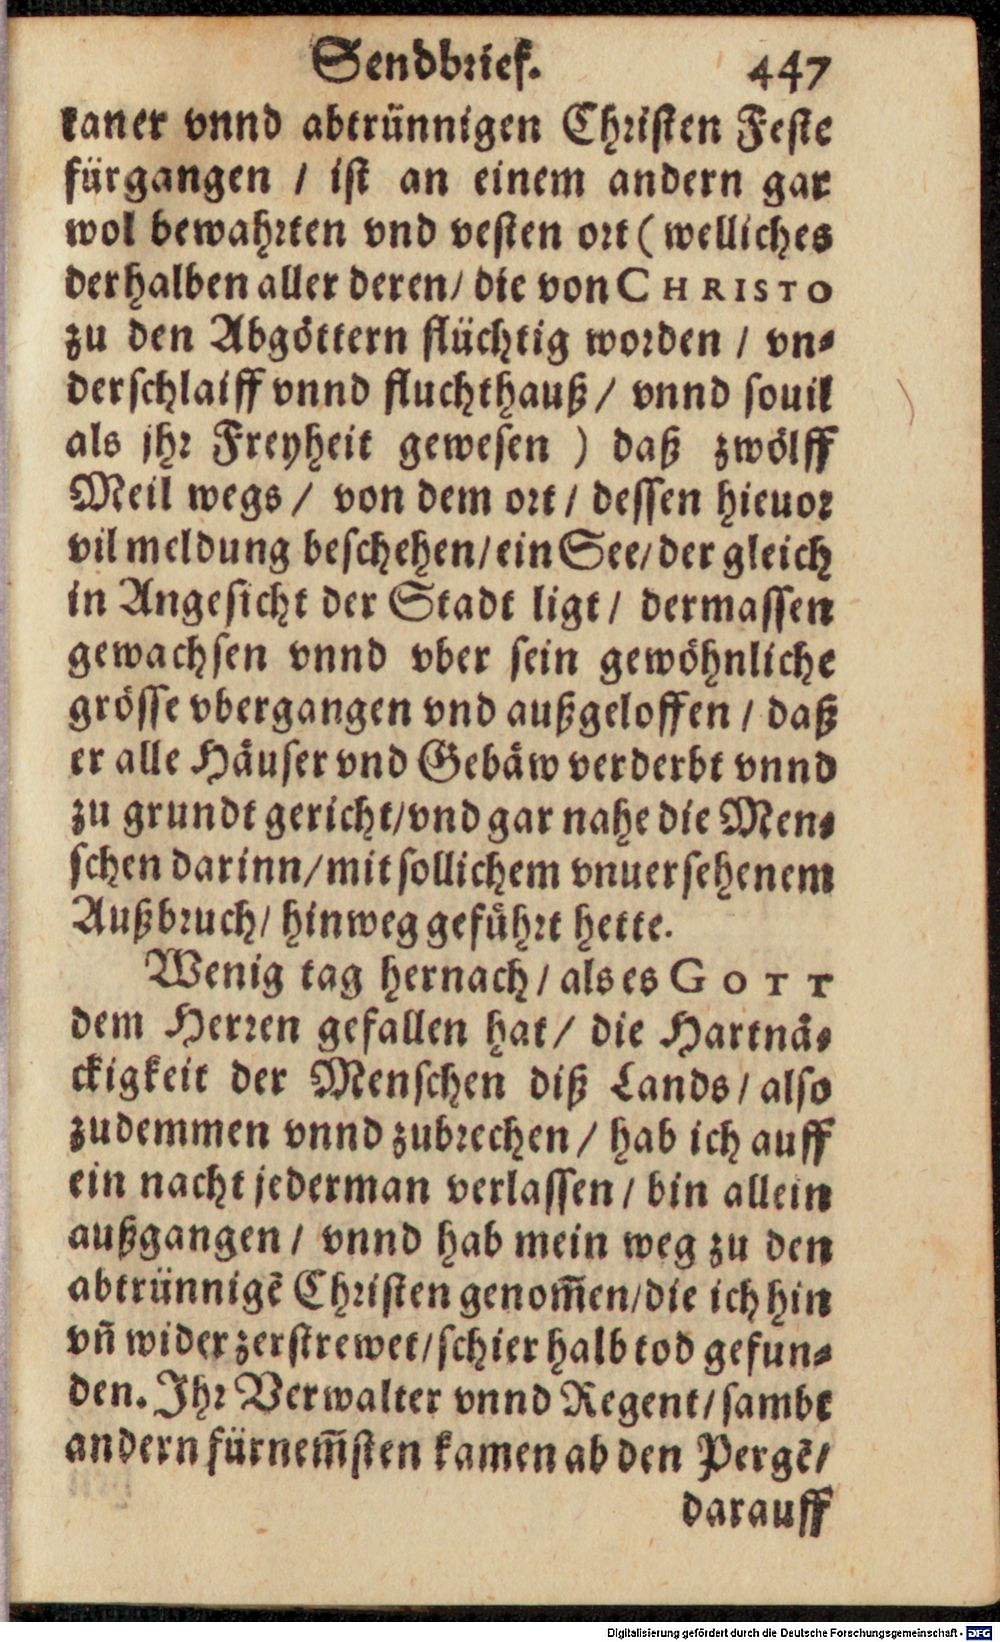 Sendbrief. 447
kaner vnnd abtrünnigen Christen Feste
fürgangen / ist an einem andern gar
wol bewahrten vnd vesten ort ( welliches
derhalben aller deren / die von CHRISTO
zu den Abgöttern flüchtig worden / vn⸗
derschlaiff vnnd fluchthauß / vnnd souil
als jhr Freyheit gewesen ) daß zwölff
Meil wegs / von dem ort / dessen hieuor
vil meldung beschehen / ein See / der gleich
in Angesicht der Stadt ligt / dermassen
gewachsen vnnd vber sein gewöhnliche
grösse vbergangen vnd außgeloffen / daß
er alle Häuser vnd Gebäw verderbt vnnd
zu grundt gericht / vnd gar nahe die Men⸗
schen darinn / mit sollichem vnuersehenem
Außbruch / hinweg geführt hette.
Wenig tag hernach / als es GOTT
dem Herren gefallen hat / die Hartnä⸗
ckigkeit der Menschen diß Lands / also
zudemmen vnnd zubrechen / hab ich auff
ein nacht jederman verlassen / bin allein
außgangen / vnnd hab mein weg zu den
abtrünnigẽ Christen genom̃en / die ich hin
vñ wider zerstrewet / schier halb tod gefun⸗
den. Jhr Verwalter vnnd Regent / sambt
andern fürnem̃sten kamen ab den Pergẽ /
darauff
Digitalisierung gefördert durch die Deutsche Forschungsgemeinschaft - DFG